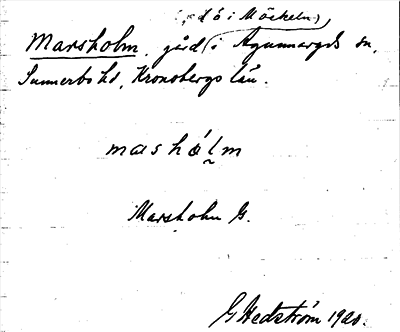 (ö i Möckeln)
Marsholm, gård i Agunnaryds sn,
Sunnerbo hd, Kronobergs län.
mashólm
Marsholm G.
G Hedström 1920.